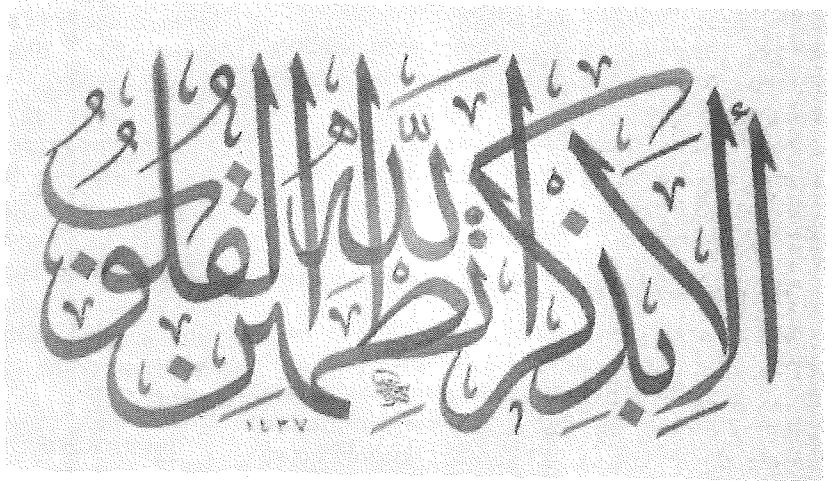 ألا بذكر الله تطمئن القلوب
١٤٣٧